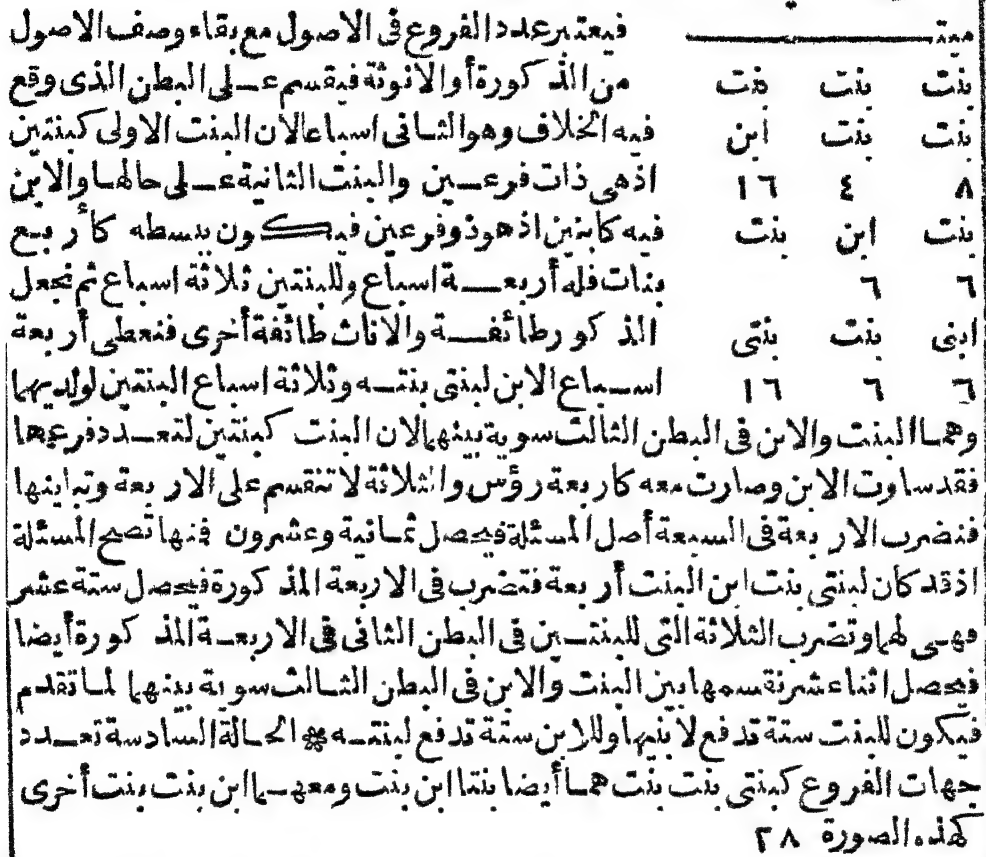 ميتـ فيعتبر عدد الفروع فى الاصول مع بقاء وصف الاصول
بنت بنت بنت من الذكورة أو الانوثة فيقسم على البطن الذى وقع
بنت بنت ابن فيه الخلاف وهو الثانى اسباعا لان البنت الاولى كبنتين
٨ ٤ ١٦ اذهى ذات فرعين والبنت الثانية على حالها والابن
بنت ابن بنت فيه كابنين اذهو ذو فرعين فيكون ببسطه كأربع
٦ ٦ بنات فله أربعة اسباع وللبنتين ثلاثة اسباع ثم نجعل
ابنى بنت بنتى الذكور طائفة والاناث طائفة أخرى فنعطى أربعة
٦ ٦ ١٦ اسباع الابن لبنتى بنته وثلاثة اسباع البنتين لولديهما
وهما البنت والابن فى البطن الثالث سوية بينهما لان البنت كبنتين لتعدد فرعها
فقد ساوت الابن وصارت معه كاربعة رؤس والثلاثة لا تنقسم على الاربعة وتباينها
فنضرب الاربعة فى السبعة أصل المسئلة فيحصل ثمانية وعشرون فمنها تصح المسئلة
اذقد كان لبنتى بنت ابن البنت أربعة فتضرب فى الاربعة المذكورة فيحصل ستة عشر
فهى لهما وتضرب الثلاثة التى للبنتين فى البطن الثانى فى الاربعة المذكورة أيضا
فيحصل اثناعشر نقسمها بين البنت والابن فى البطن الثالث سوية بينهما لما تقدم
فيكون للبنت ستة تدفع لابنيها وللابن ستة تدفع لبنته * الحالة السادسة تعدد
جهات الفروع كبنتى بنت بنت هما أيضا بنتا ابن بنت ومعهما ابن بنت بنت أخرى
كهذه الصورة ٢٨